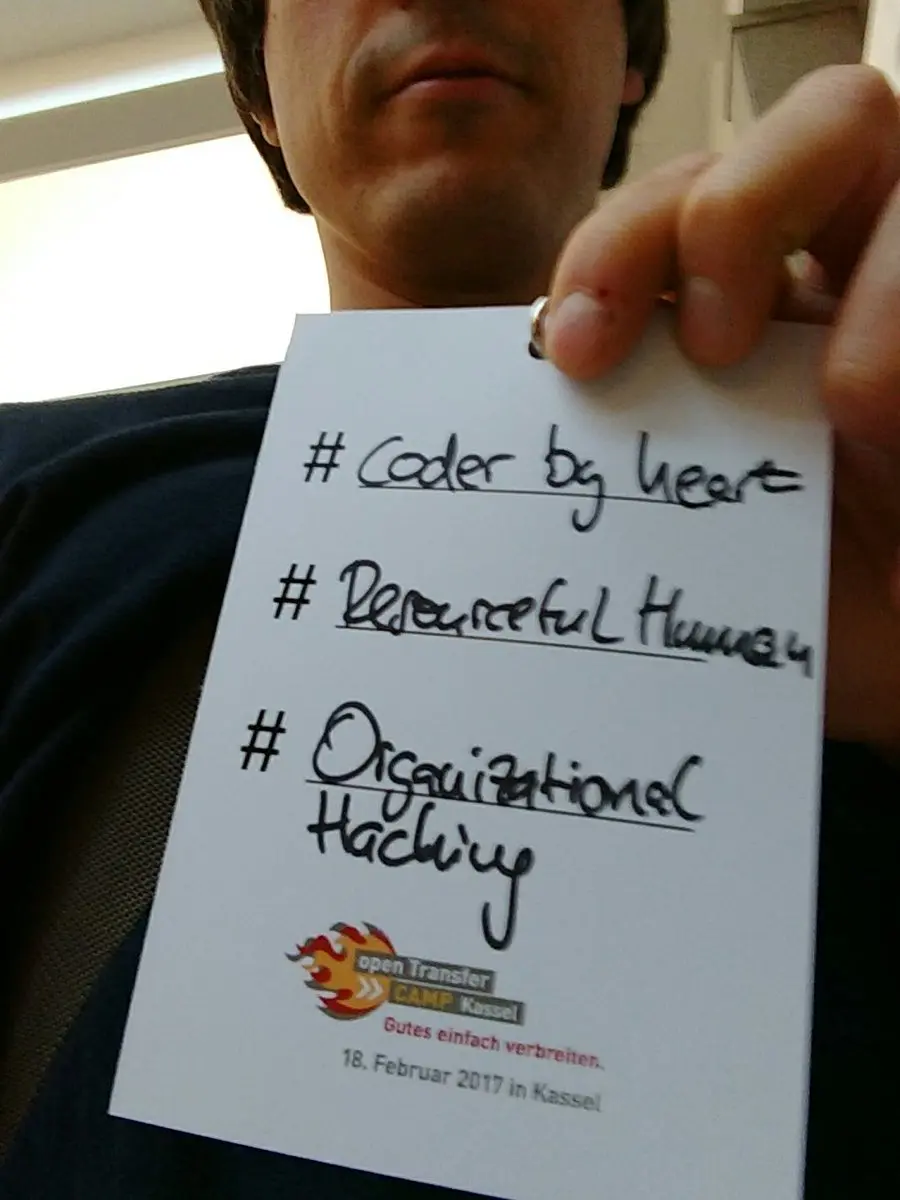 # Coder by heart
# Resourceful Human
# Organizational
Hacking
open Transfer
CAMP Kassel
Gutes einfach verbreiten.
18. Februar 2017 in Kassel